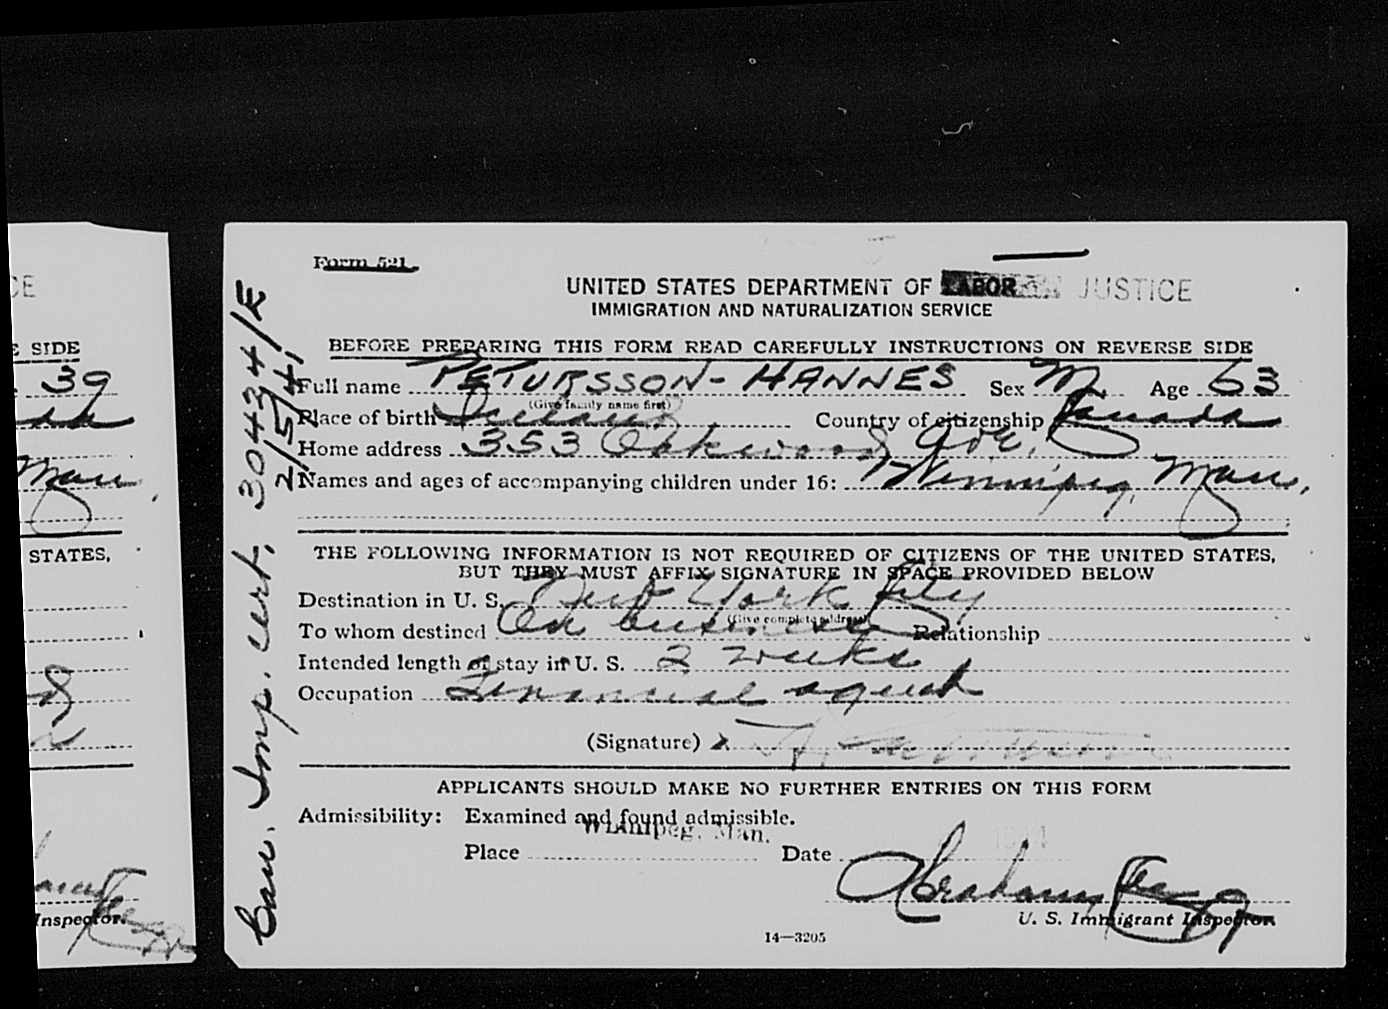 Form 521
UNITED STATES DEPARTMENT OF LABOR JUSTICE
IMMIGRATION AND NATURALIZATION SERVICE
BEFORE PREPARING THIS FORM READ CAREFULLY INSTRUCTIONS ON REVERSE SIDE
Full name PETURSSON - HANNES Sex M Age 63
(Give family name first)
Place of birth Iceland Country of citizenship Canada
Home address 353 Oakwood Ave.
Names and ages of accompanying children under 16: Winnipeg, Man.
THE FOLLOWING INFORMATION IS NOT REQUIRED OF CITIZENS OF THE UNITED STATES,
BUT THEY MUST AFFIX SIGNATURE IN SPACE PROVIDED BELOW
Destination in U. S. New York City
(Give complete address)
To whom destined On business Relationship
Intended length of stay in U. S. 2 weeks
Occupation Financial agent
(Signature) X
APPLICANTS SHOULD MAKE NO FURTHER ENTRIES ON THIS FORM
Admissibility: Examined and found admissible.
Winnipeg, Man.
Place Date
Abraham
U. S. Immigrant Inspector.
14—3205
Can. Imp. cert. 30434/E
2/5/41
SIDE
39
Man.
STATES,
Inspector.